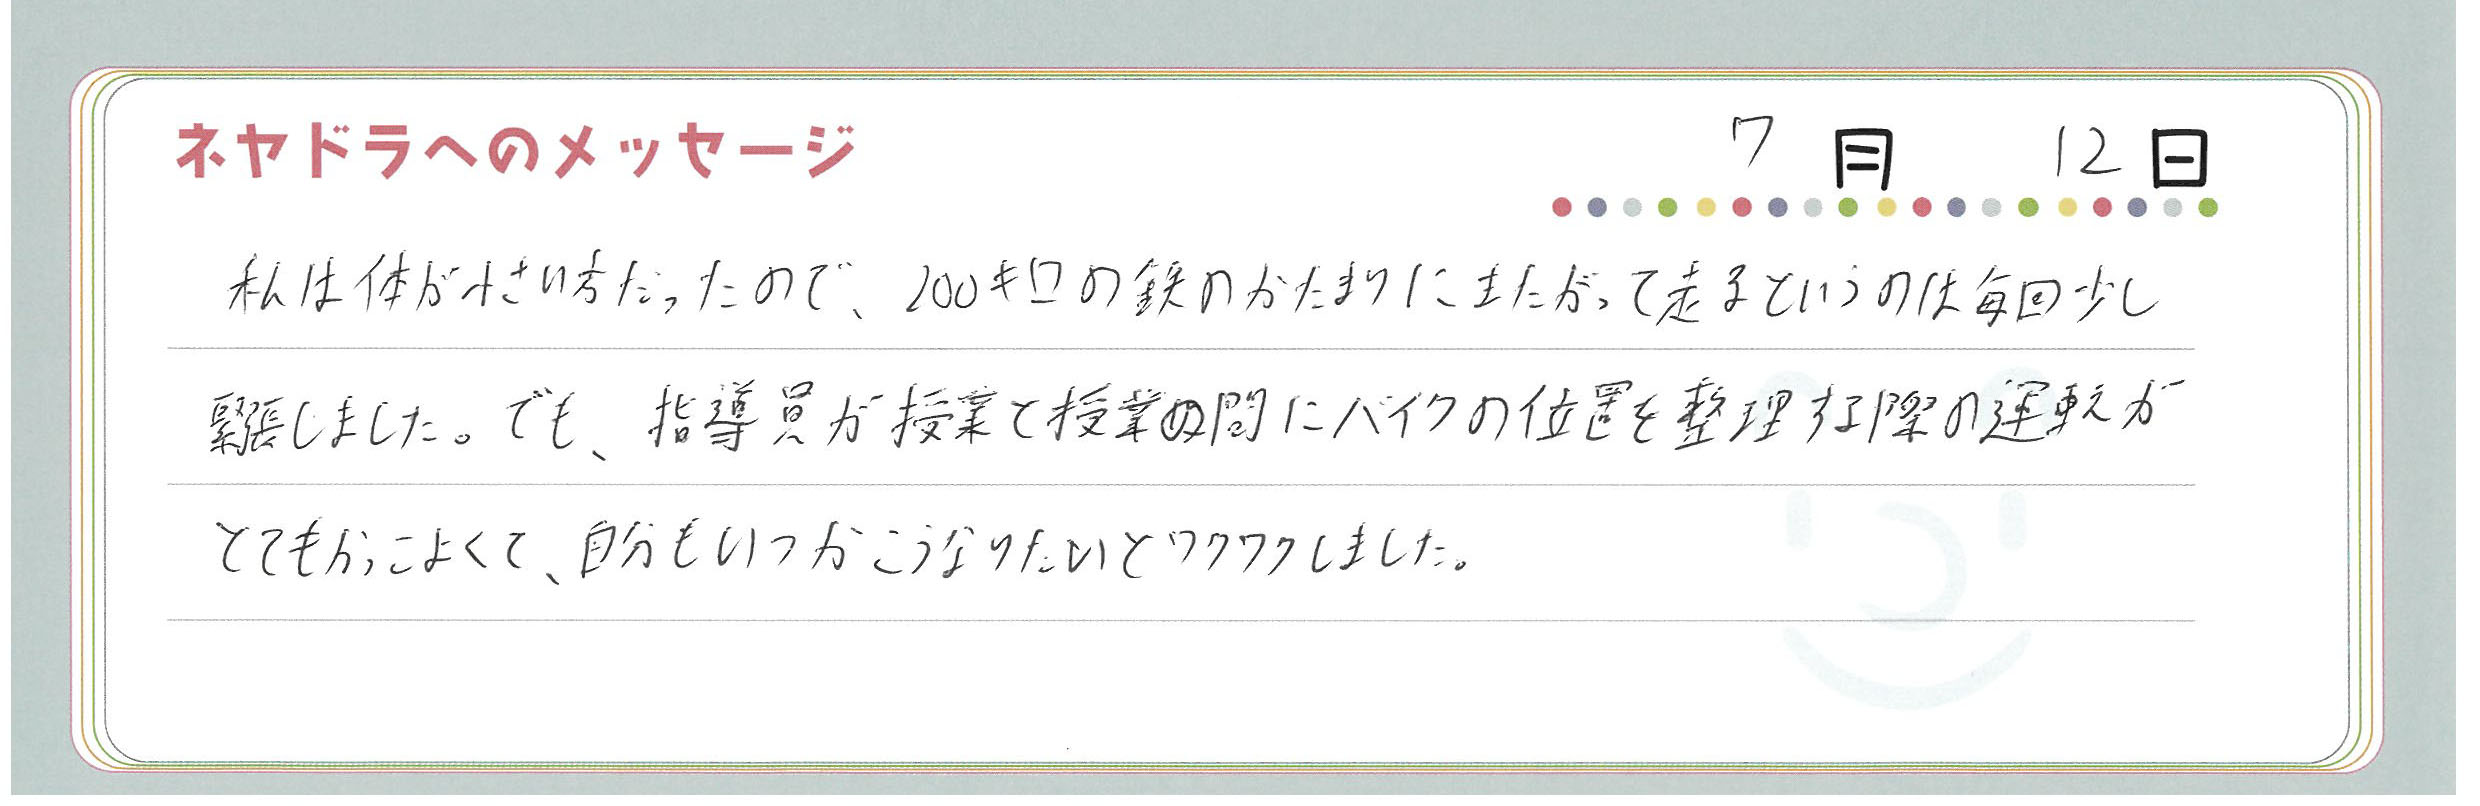 ネヤドラへのメッセージ
7月 12日
私は体が小さい方だったので、200キロの鉄のかたまりにまたがって走るというのは毎回少し
緊張しました。でも、指導員が授業と授業の間にバイクの位置を整理する際の運転が
とてもかっこよくて、自分もいつかこうなりたいとワクワクしました。